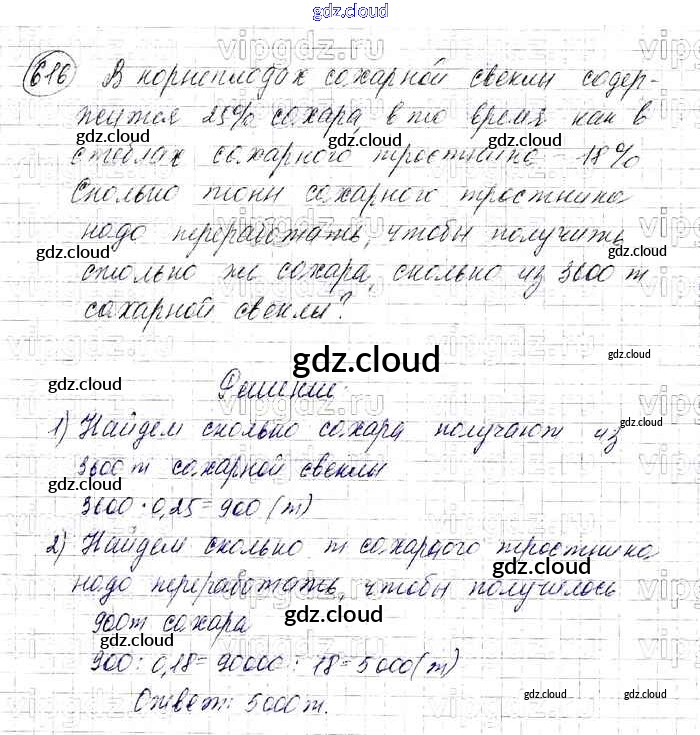 gdz.cloud
616 В корнеплодах сахарной свеклы содер-
жится 25% сахара, в то время как в
стеблях сахарного тростника - 18%
Сколько тонн сахарного тростника
надо переработать, чтобы получить
столько же сахара, сколько из 3600 т
сахарной свеклы?
gdz.cloud
Решение:
1) Найдем сколько сахара получают из
3600 т сахарной свеклы
3600 · 0,25 = 900 (т)
2) Найдем сколько т сахарного тростника
надо переработать, чтобы получилось
900т сахара
900 : 0,18 = 90000 : 18 = 5000 (т)
Ответ: 5000 т.